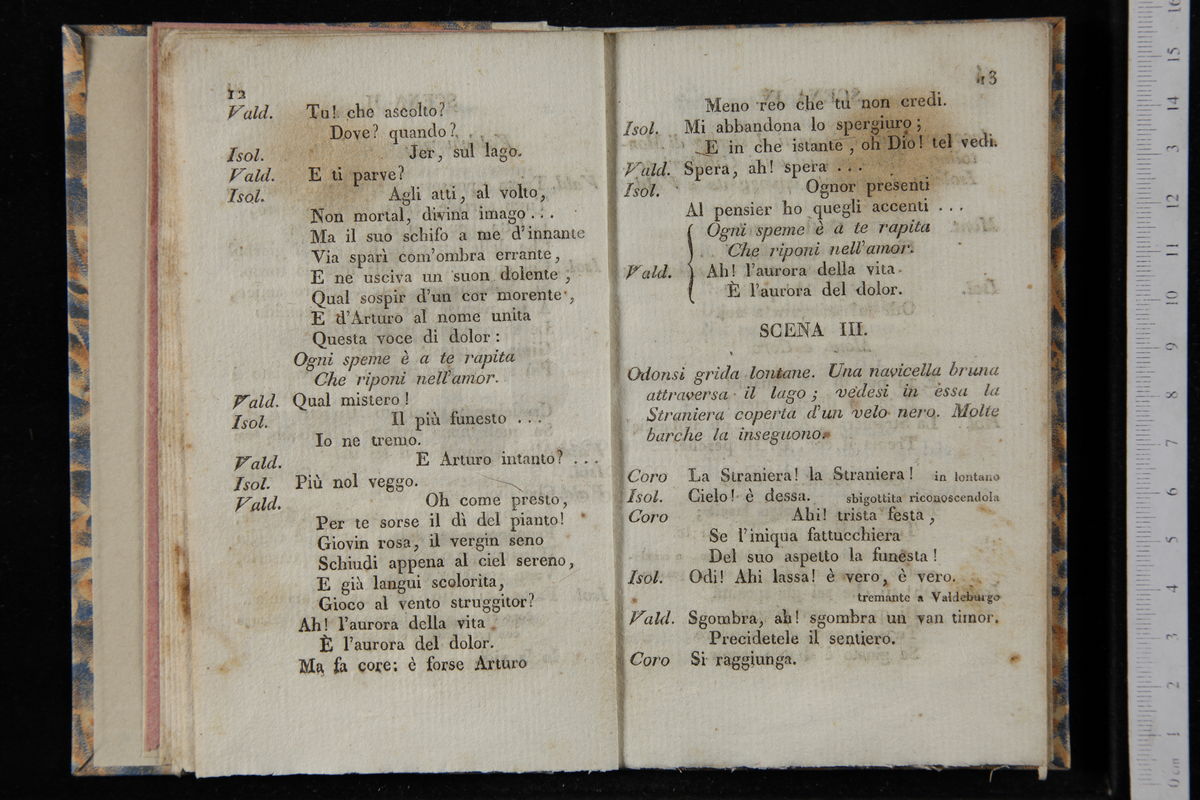 12
Vald. Tu! che ascolto?
Dove? quando?
Isol. Jer, sul lago.
Vald. E ti parve?
Isol. Agli atti, al volto,
Non mortal, divina imago . . .
Ma il suo schifo a me d'innante
Via sparì com'ombra errante,
E ne usciva un suon dolente,
Qual sospir d'un cor morente,
E d'Arturo al nome unita
Questa voce di dolor:
Ogni speme è a te rapita
Che riponi nell'amor.
Vald. Qual mistero!
Isol. Il più funesto . . .
Io ne tremo.
Vald. E Arturo intanto? . . .
Isol. Più nol veggo.
Vald. Oh come presto,
Per te sorse il dì del pianto!
Giovin rosa, il vergin seno
Schiudi appena al ciel sereno,
E già langui scolorita,
Gioco al vento struggitor?
Ah! l'aurora della vita
È l'aurora del dolor.
Ma fa core: è forse Arturo
13
Meno reo che tu non credi.
Isol. Mi abbandona lo spergiuro;
E in che istante, oh Dio! tel vedi.
Vald. Spera, ah! spera . . .
Isol. Ognor presenti
Al pensier ho quegli accenti . . .
Ogni speme è a te rapita
Che riponi nell'amor.
Vald. Ah! l'aurora della vita
È l'aurora del dolor.
SCENA III.
Odonsi grida lontane. Una navicella bruna
attraversa il lago; vedesi in essa la
Straniera coperta d'un velo nero. Molte
barche la inseguono.
Coro La Straniera! la Straniera! in lontano
Isol. Cielo! è dessa. sbigottita riconoscendola
Coro Ahi! trista festa,
Se l'iniqua fattucchiera
Del suo aspetto la funesta!
Isol. Odi! Ahi lassa! è vero, è vero.
tremante a Valdeburgo
Vald. Sgombra, ah! sgombra un van timor.
Precidetele il sentiero.
Coro Si raggiunga.
0 cm 1 2 3 4 5 6 7 8 9 10 11 12 13 14 15 16